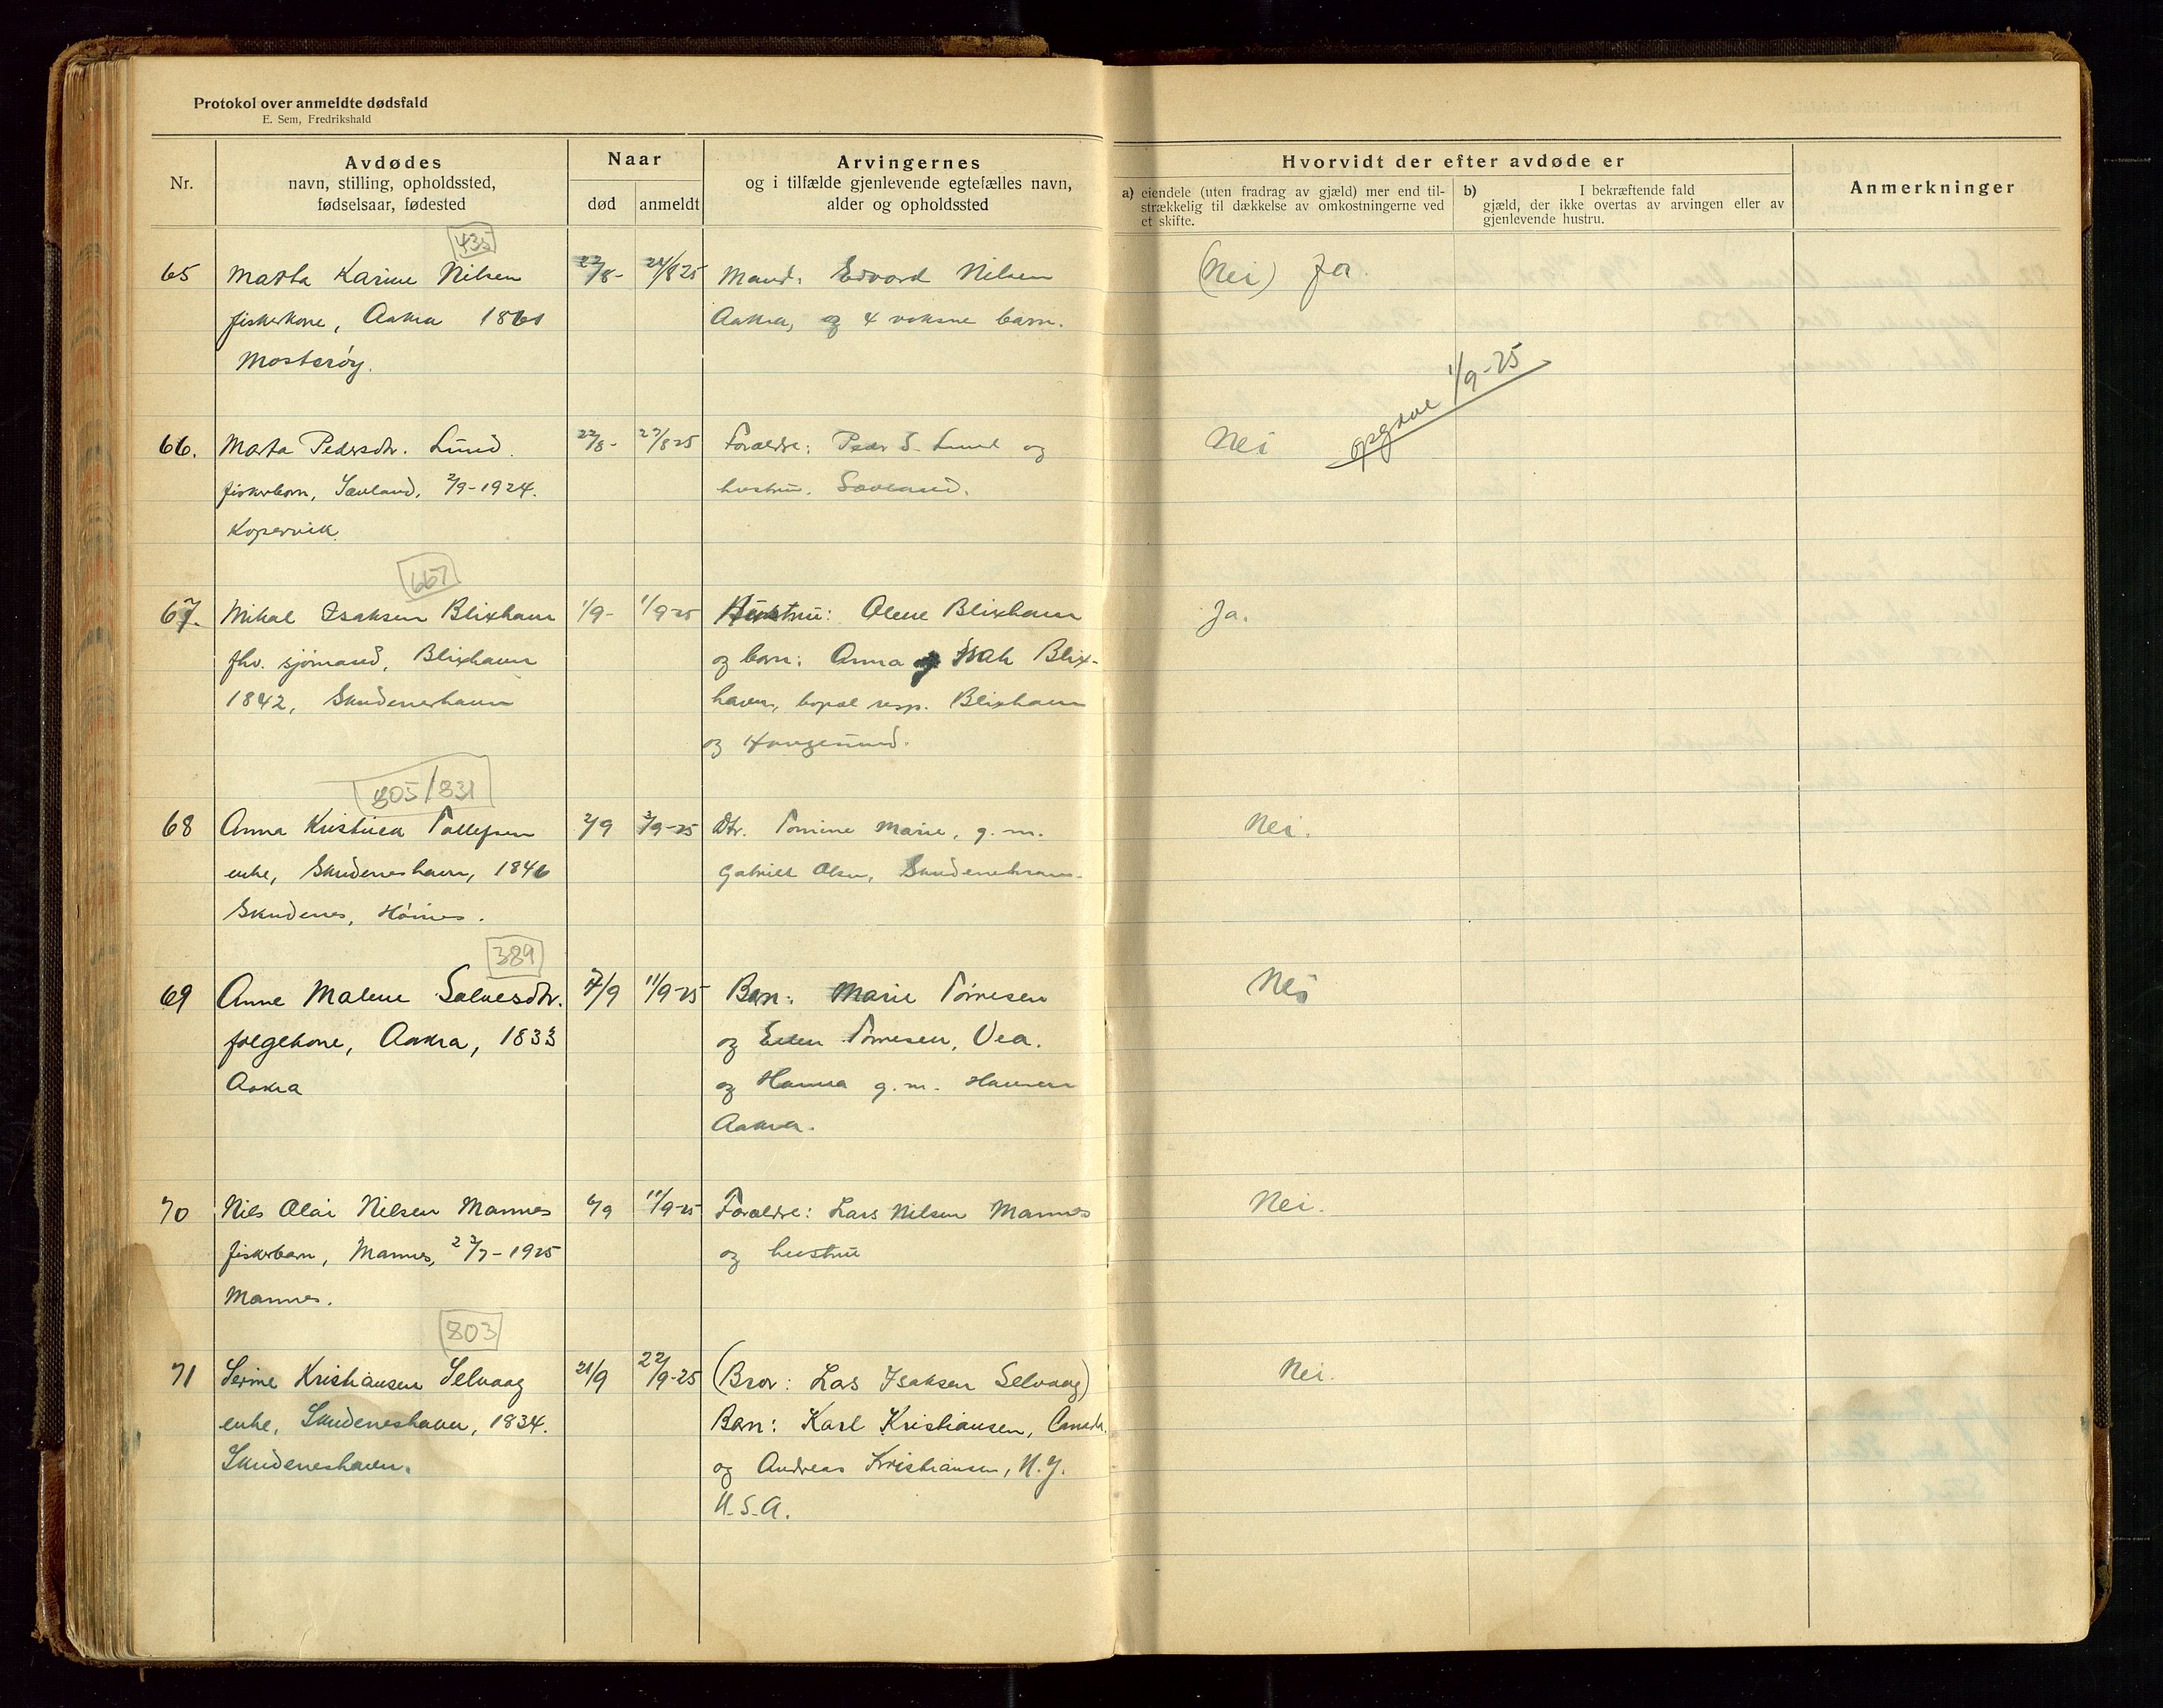 Protokol over anmeldte dødsfald
E. Sem, Fredrikshald
Nr.
Avdødes
navn, stilling, opholdssted,
fødselsaar, fødested
Naar
død
anmeldt
Arvingernes
og i tilfælde gjenlevende egtefælles navn,
alder og opholdssted
Hvorvidt der efter avdøde er
a) eiendele (uten fradrag av gjæld) mer end til-
strækkelig til dækkelse av omkostningerne ved
et skifte.
b) I bekræftende fald
gjæld, der ikke overtas av arvingen eller av
gjenlevende hustru.
Anmerkninger
435
65 Marta Karine Nilsen 22/8- 24/8 25 Mand: Edvard Nilsen (Nei) Ja.
fiskerkone, Aakra 1861 Aakra, og 4 voksne barn.
Mosterøy.
opgave 1/9-25
66. Marta Pedersdtr. Lund. 22/8- 27/8 25 Forældre: Peder S. Lund og Nei
fiskerbarn, Sævland, 2/9-1924. hustru, Sævland.
Kopervik.
667
67. Mikal Isaksen Blixhavn 1/9- 1/9-25 Hustru: Olene Blixhavn Ja.
fhv. sjømand, Blixhavn og barn: Anna og Isak Blix-
1842, Skudeneshavn havn, bopæl resp. Blixhavn
og Haugesund.
805/831
68 Anna Kristina Tollefsen 2/9 3/9-25 Dtr. Tomine Marie, g.m. Nei.
enke, Skudeneshavn, 1846 Gabriel Olsen, Skudeneshavn.
Skudenes, Høines.
389
69 Anne Malene Salvesdtr. 7/9 11/9-25 Barn: Marie Tørresen Nei
følgekone, Aakra, 1833 og Ellen Tørresen, Vea.
Aakra og Hanna g.m. Hansen
Aakra.
70 Nils Olai Nilsen Mannes 6/9 11/9-25 Forældre: Lars Nilsen Mannes Nei.
fiskerbarn, Mannes, 23/7-1925 og hustru
Mannes.
803
71 Serine Kristiansen Selvaag 21/9 22/9-25 (Bror: Lars Isaksen Selvaag) Nei.
enke, Skudeneshavn, 1834. Barn: Karl Kristiansen, Canada.
Skudeneshavn. og Andreas Kristiansen, N.Y.
U.S.A.